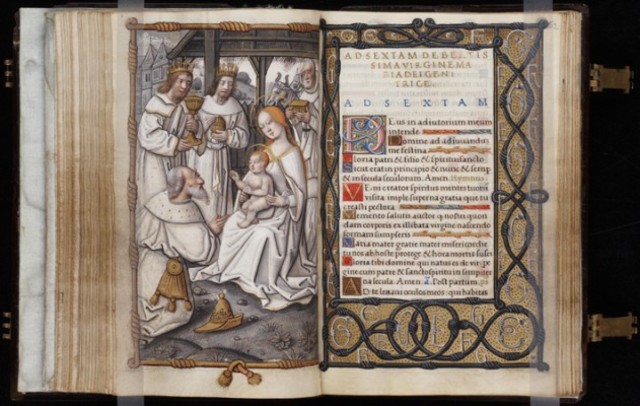 AD SEXTAM DE BEATIS
SIMA VIRGINE MA
RIA DEI GENI
TRICE.
AD SEXTAM
Deus in adiutorium meum
intende.
Domine ad adiuuandum
me festina
Gloria patri & filio & spiritui sancto
Sicut erat in principio & nunc & semp
& in secula seculorum. Amen. Hymnus
Veni creator spiritus mentes tuorum
visita. imple superna gratia que tu
creasti pectora
Memento salutis auctor q nostri quon
dam corporis ex illibata virgine nascendo
formam sumpseris
Maria mater gratie mater misericordie
tu nos ab hoste protege & hora mortis suscipe
Gloria tibi domine qui natus es de virgine
gine cum patre & sancto spiritu in sempiter
na secula. Amen. a. Post partum.
AD te leuaui oculos meos: qui habitas